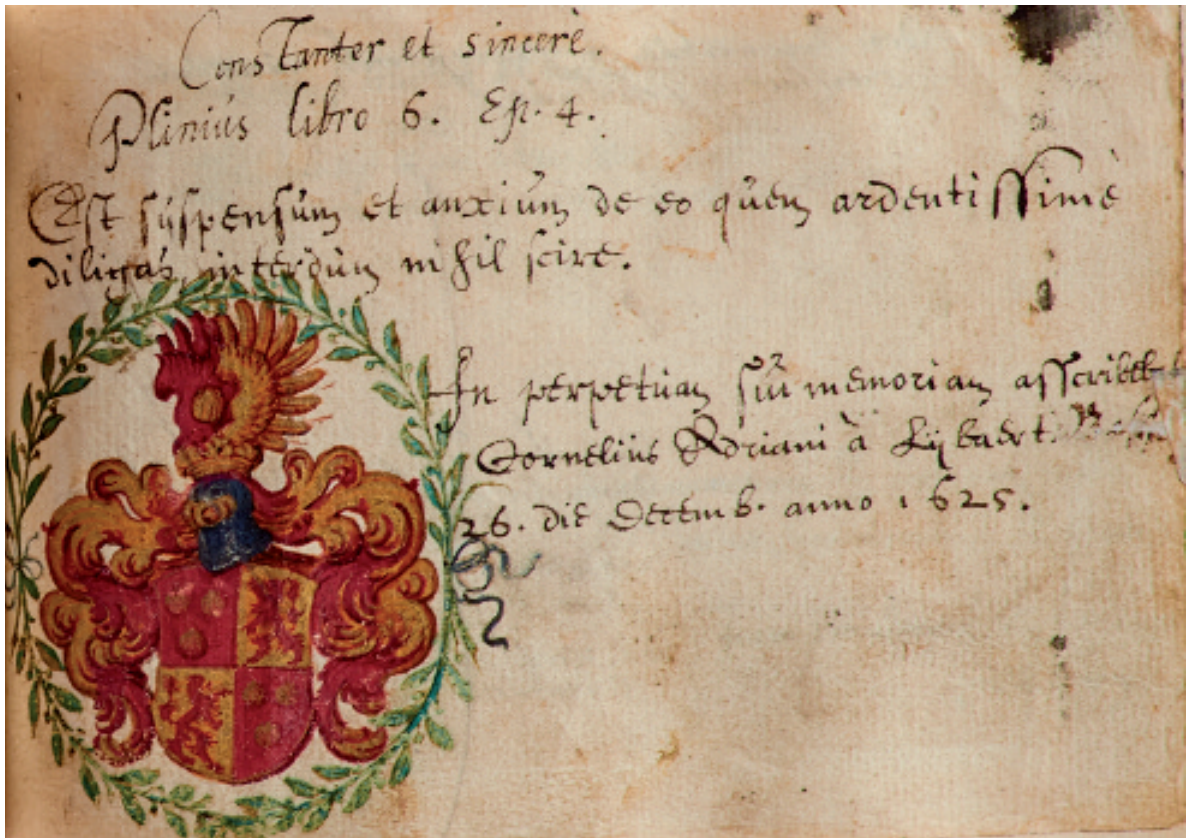 Constanter et sincere.
Plinius libro 6. Ep. 4.
Est suspensum et anxium de eo quem ardentissimè
diligas, interdum nihil scire.
In perpetuam sui memoriam asscribeb
Cornelius Adriani à Lijbaert.
26. die Decemb. anno 1625.